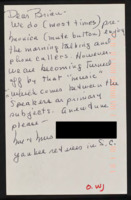 Dear Brian -
We do (most times) pre-
service (mute button) enjoy
the morning talking and
phone callers. However,
we are becoming turned
off by that "music"
which comes between the
speakers or primary
subjects. Quieter
please -
Mr & Mrs
yankee retirees in S.C.
O.W.J